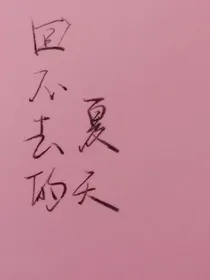 回不去的
夏天